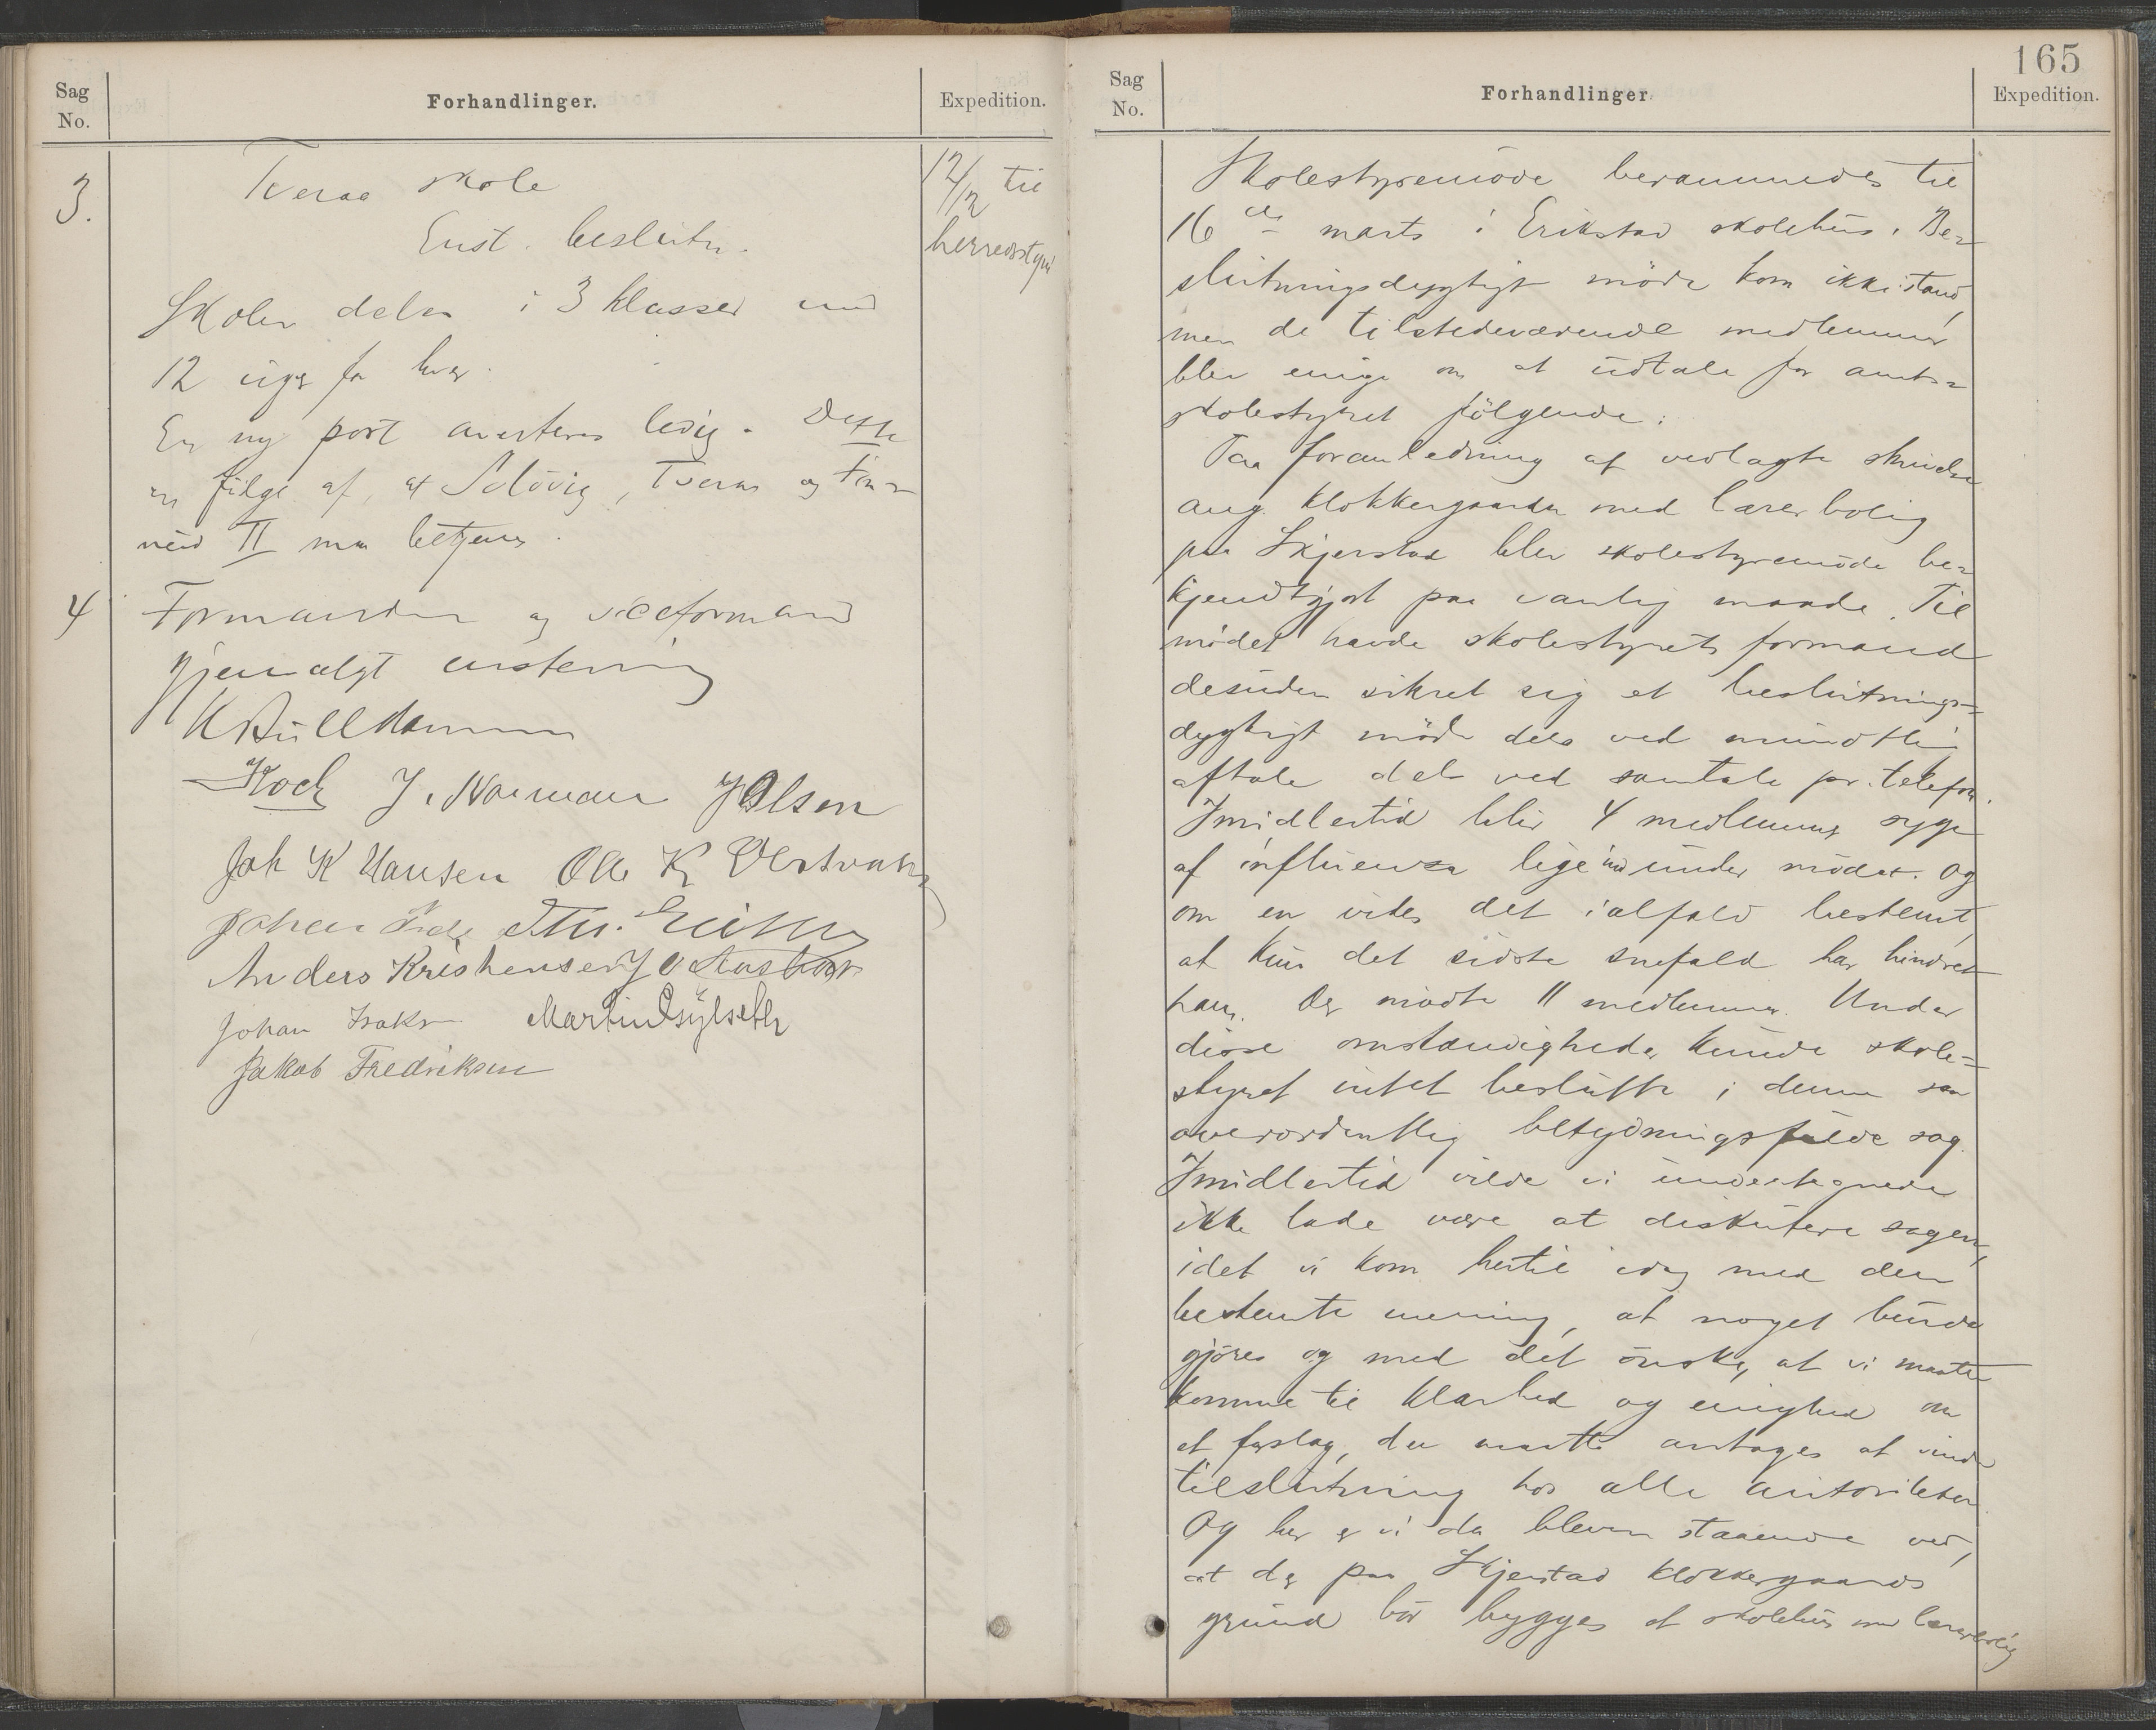 Sag No.
Forhandlinger.
Expedition.
3.
Tveraa skole
Enst. beslutn.
Skolen deles i 3 klasser med
12 uger for hver.
En ny post averteres ledig. Dette
en følge af, at Seløvig, Tveraa og Fin-
neid II maa betjenes.
12/12 til
herredsstyre
4
Formanden og viceformand
gjenvalgt enstemmig
K Bull Hansen
Koch J. Norman J Olsen
Joh K Hansen Ole K Vestvatn
Johan
Anders Kristensen
Johan Isaks Martin Gylseth
Jakob Fredriksen
165
Sag No.
Forhandlinger
Expedition.
Skolestyremøde berammedes til
16de marts i Erikstad skolehus. Be-
slutningsdygtigt møde kom ikke istand,
men de tilstedeværende medlemmer
blev enige om at udtale for amts-
skolestyret følgende:
Paa foranledning af vedlagte skrivelse
ang. klokkergaarden med lærerbolig
paa Skjerstad blev skolestyremøde be-
kjendtgjort paa vanlig maade. Til
mødet havde skolestyrets formand
desuden sikret sig et beslutnings-
dygtigt møde dels ved mundtlig
aftale dels ved samtale pr. telefon.
Imidlertid blev 4 medlemmer syge
af influenza lige ind under mødet. Og
om en vides det ialfald bestemt,
at kun det sidste snefald har hindret
ham. Der mødte 11 medlemmer. Under
disse omstændigheder kunde skole-
styret intet beslutte i denne saa
overordentlig betydningsfulde sag.
Imidlertid vilde vi undertegnede
ikke lade være at diskutere sagen,
idet vi kom hertil idag med den
bestemte mening, at noget burde
gjøres og med det ønske, at vi maatte
komme til klarhed og enighed om
et forslag, der maatte antages at vinde
tilslutning hos alle autoriteter.
Og her er vi da bleven staaende ved,
at der paa Skjerstad klokkergaards
grund bør bygges et skolehus med lærerbolig